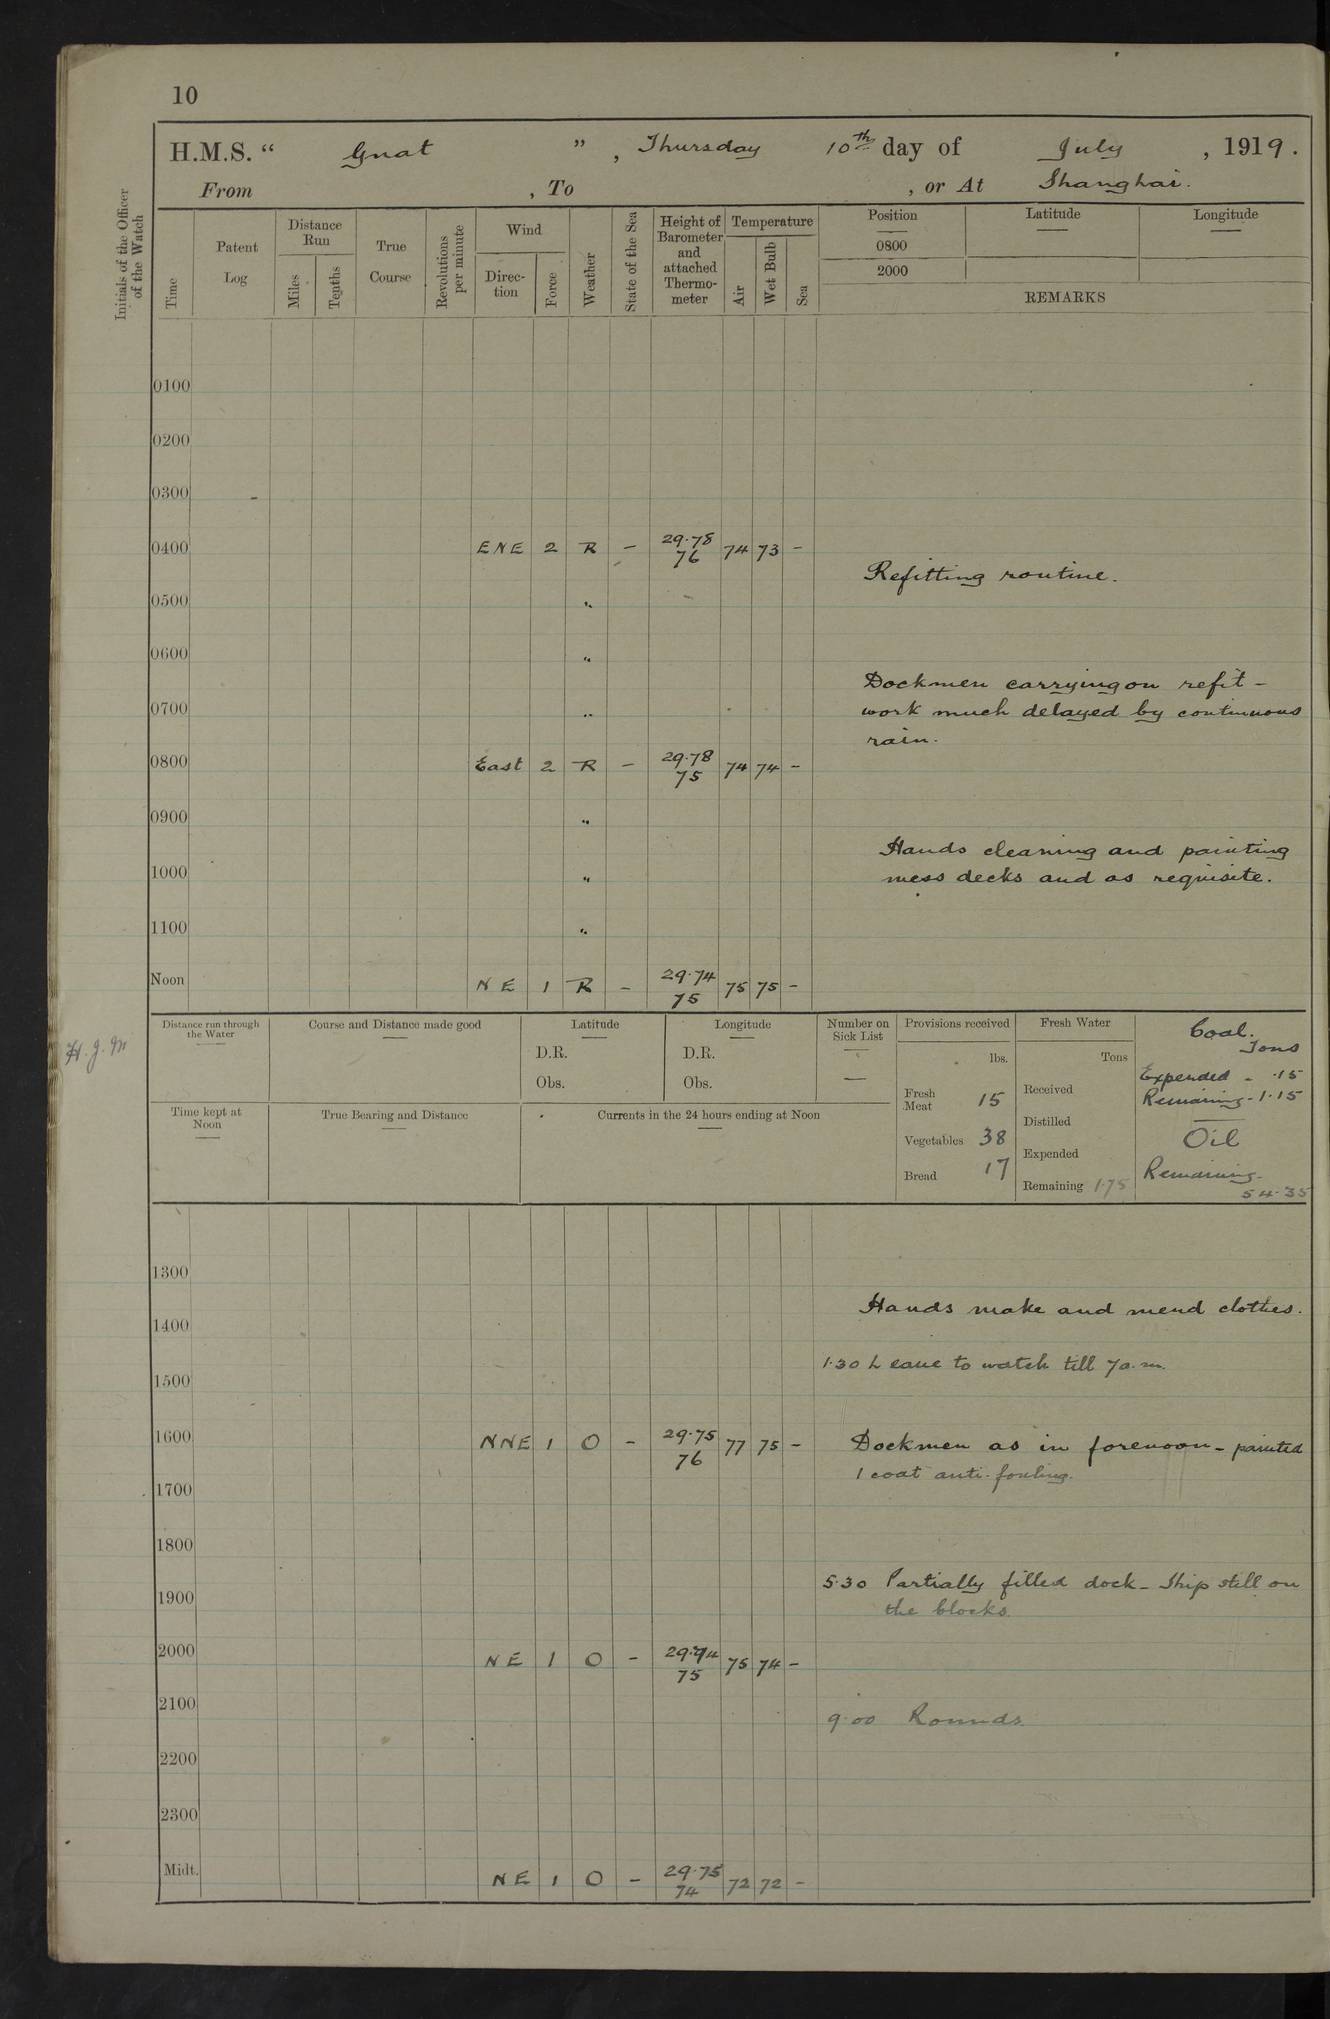 10
H.M.S. “ Gnat ” , Thursday 10th day of July , 1919.
From , To , or At Shanghai.
Initials of the Officer of the Watch
Time
Patent Log
Distance Run
Miles
Tenths
True Course
Revolutions per minute
Wind
Direc-tion
Force
Weather
State of the Sea
Height of Barometer and attached Thermo-meter
Temperature
Air
Wet Bulb
Sea
Position Latitude Longitude
0800
2000
REMARKS
0100
0200
0300 -
0400 ENE 2 R - 29.78 76 74 73 -
Refitting routine.
0500 "
0600 "
Dockmen carrying on refit -
0700 " work much delayed by continuous
rain.
0800 East 2 R - 29.78 75 74 74 -
0900 "
Hands cleaning and painting
1000 " mess decks and as requisite.
1100 "
Noon NE 1 R - 29.74 75 75 75 -
Distance run through the Water
Course and Distance made good
Latitude
D.R.
Obs.
Longitude
D.R.
Obs.
Number on Sick List
—
Provisions received
lbs.
Fresh Meat 15
Vegetables 38
Bread 17
Fresh Water
Tons
Received
Distilled
Expended
Remaining 1.75
Coal.
Tons
Expended - .15
Remaining - 1.15
Oil
Remaining.
54.35
H.J.M
Time kept at Noon
True Bearing and Distance
Currents in the 24 hours ending at Noon
1300
Hands make and mend clothes.
1400
1.30 Leave to watch till 7 a.m.
1500
1600 NNE 1 O - 29.75 76 77 75 - Dockmen as in forenoon - painted
1 coat anti-fouling.
1700
1800
5.30 Partially filled dock - Ship still on
1900
the blocks.
2000 NE 1 O - 29.74 75 75 74 -
2100
9.00 Rounds.
2200
2300
Midt. NE 1 O - 29.75 74 72 72 -